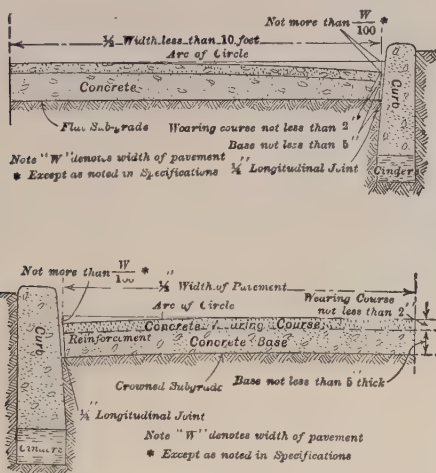 Not more than W/100 *
½ Width less than 10 feet
Arc of Circle
Concrete
Curb
Flat Subgrade
Wearing course not less than 2"
Base not less than 5"
Note "W" denotes width of pavement
¼" Longitudinal Joint
* Except as noted in Specifications
Cinder
Not more than W/100 *
½ Width of Pavement
Wearing Course
not less than 2"
Arc of Circle
Concrete Wearing Course
Reinforcement
Concrete Base
Curb
Crowned Subgrade
Base not less than 5" thick
¼" Longitudinal Joint
Cinders
Note "W" denotes width of pavement
* Except as noted in Specifications